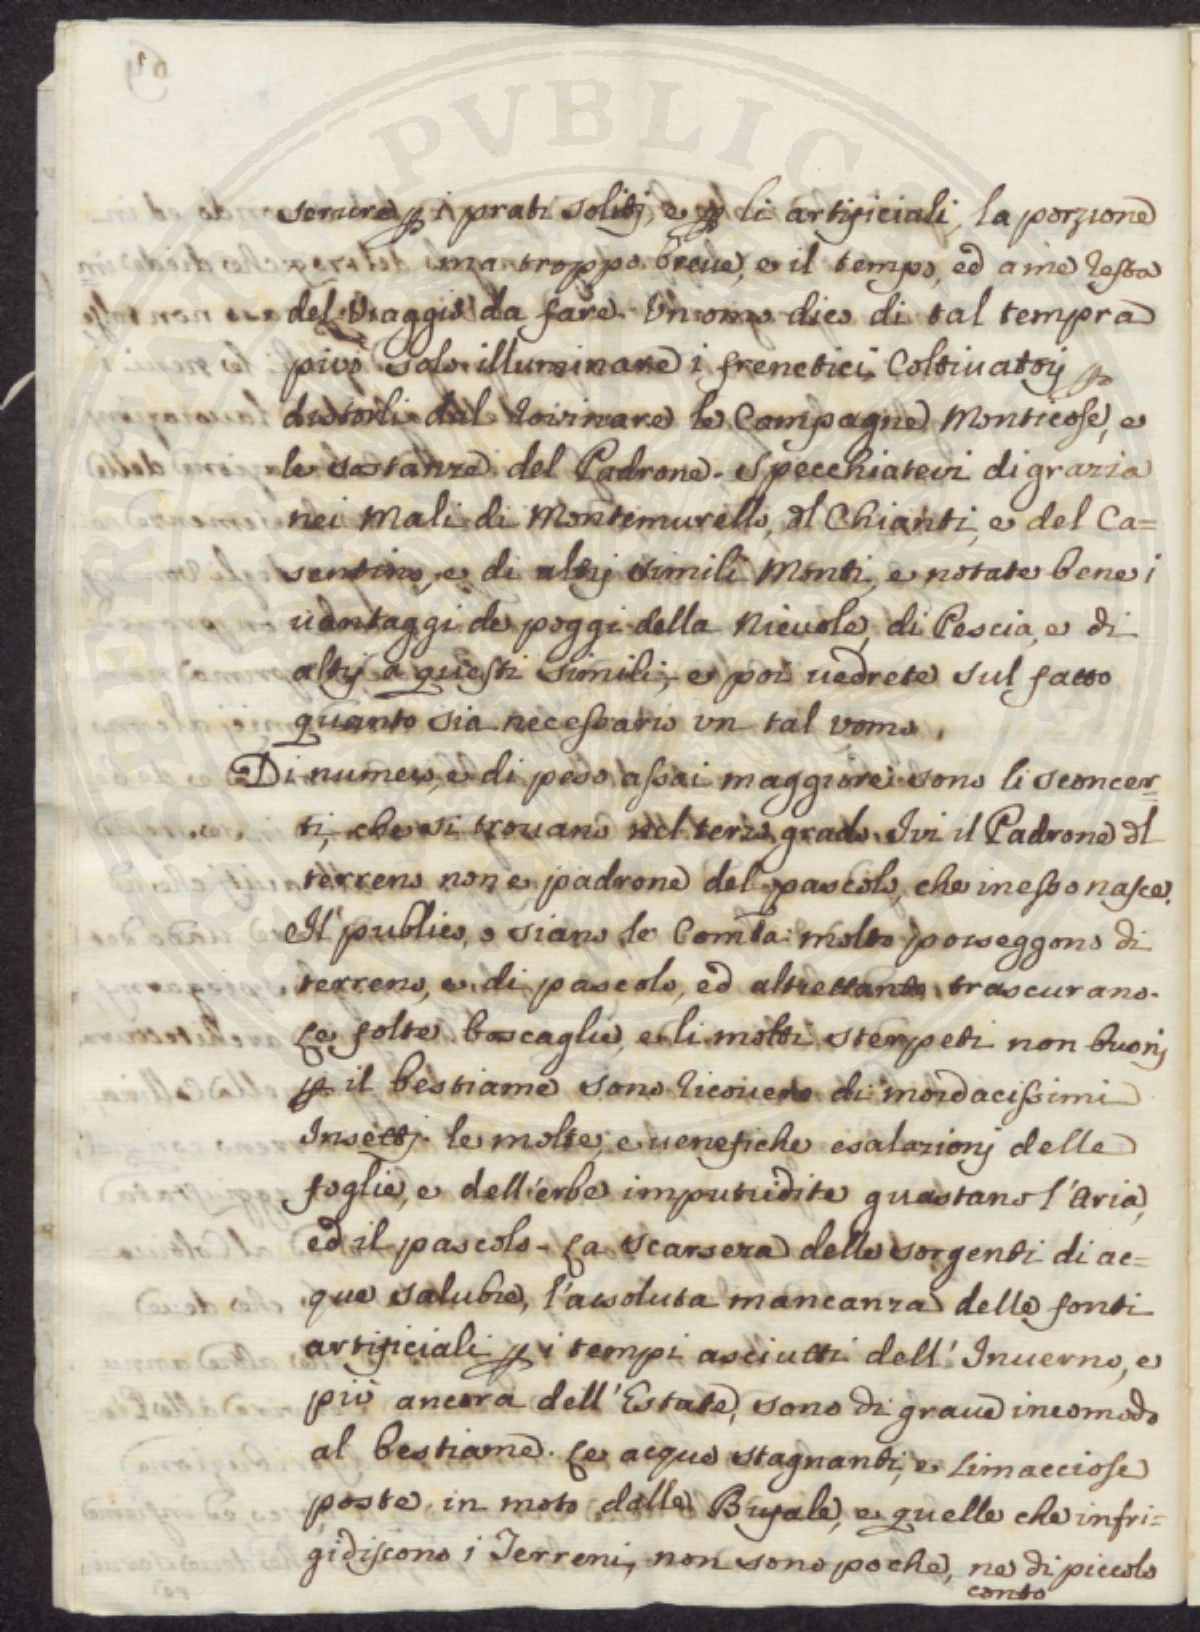 PVBLICA
semire p i prati soliti, e p li artificiali, la porzione
ma troppo breue, e il tempo, ed a me resta
del Viaggio da fare. Un omo dico di tal tempra
può solo illuminare i frenetici Coltivatorj p
distorli dal rovinare le Campagne Monticose, e
le sostanze del Padrone. Specchiatevi di grazia
nei Mali di Montemurello, dl Chianti, e del Ca=
sentino, e di altrj simili Monti, e notate bene i
uantaggi de poggi della Nieuole, di Pescia, e di
altrj a questi simili; e poi uedrete sul fatto
quanto sia necessario vn tal vomo.
Di numero, e di peso assai maggiore sono li sconcer=
ti, che si trouano nel terzo grado. Ivi il Padrone dl
terreno non e padrone del pascolo, che in esso nasce.
Il publico, o siano le Comtà: molto posseggono di
terreno, e di pascolo, ed altrettanto trascurano.
Le folte boscaglie, e li molti sterpeti non buonj
p il bestiame sono ricouero di mordacissimi
Insettj. le molte, e uenefiche esalazionj delle
foglie, e dell'erbe imputridite guastano l'Aria,
ed il pascolo. La scarseza delle sorgenti di ac=
que salubre, l'assoluta mancanza delle fonti
artificiali p i tempi asciutti dell'Inuerno, e
più ancora dell'Estate, sono di graue incomodo
al bestiame. Le acque stagnanti, e limacciose
poste in moto dalle Bufale, e quelle che infri=
gidiscono i Terreni, non sono poche, ne di piccolo
conto